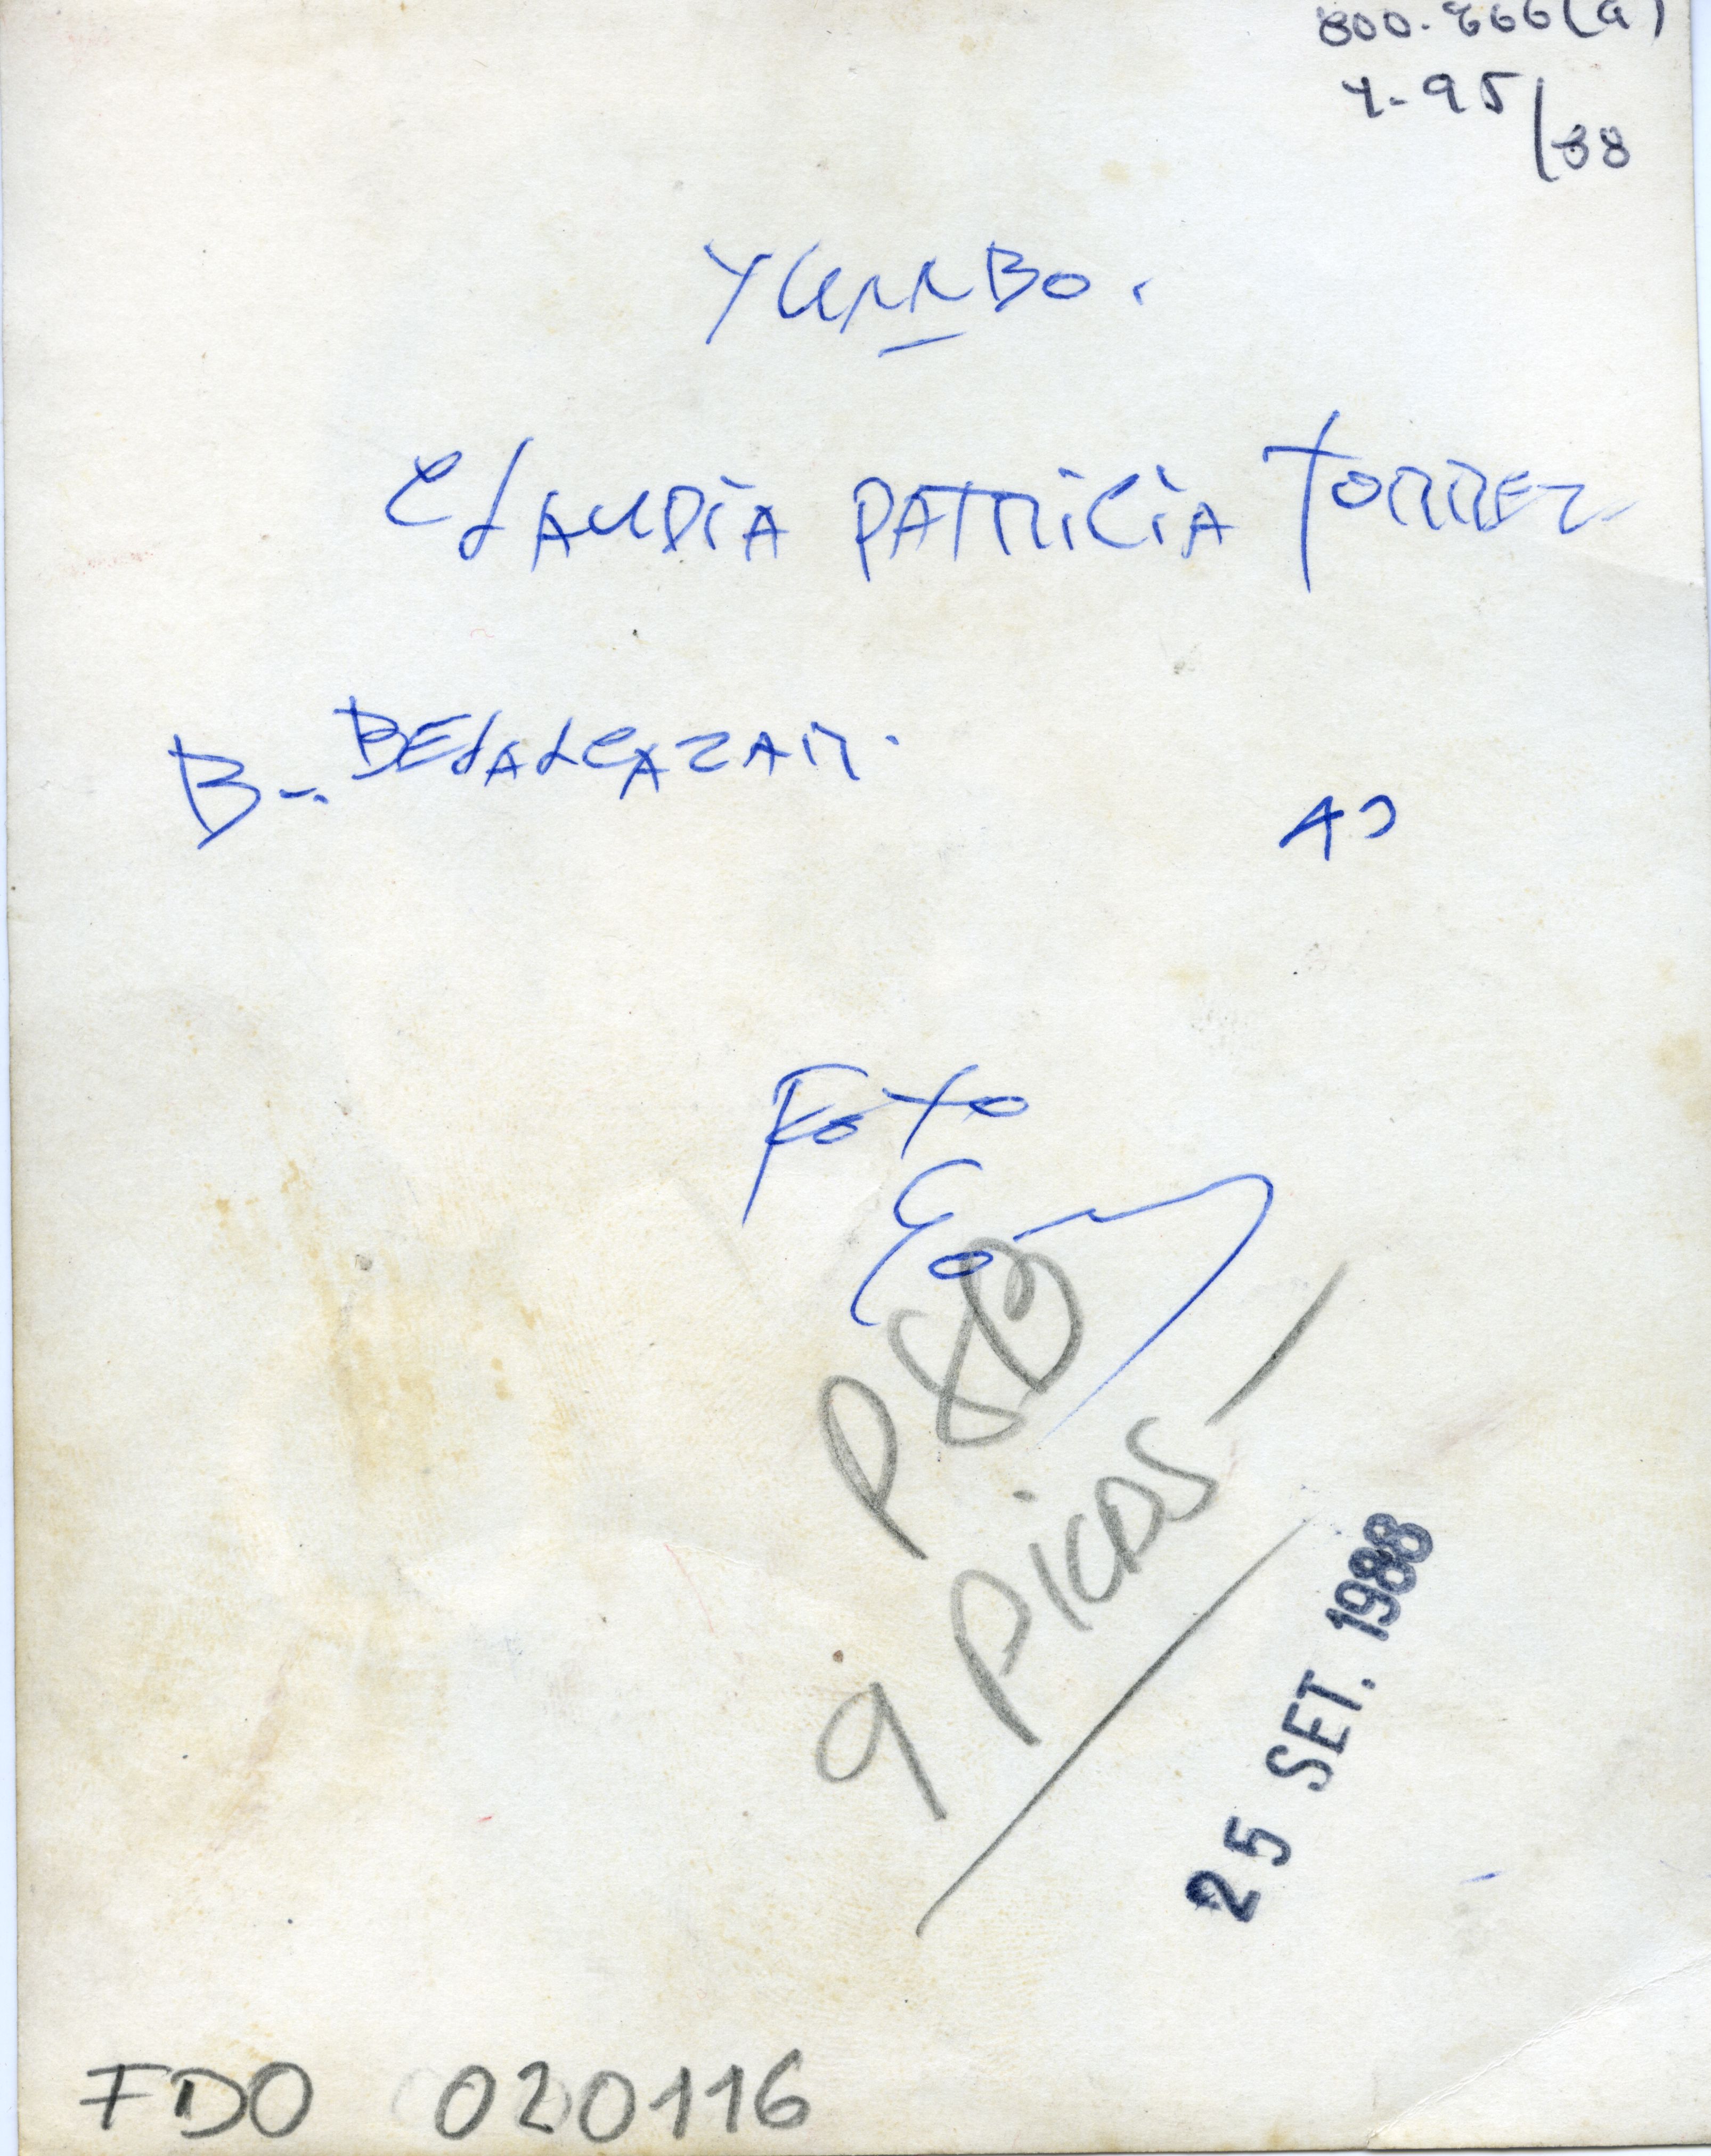 800-866(a)
Y-95/88
YUMBO.
CLAUDIA PATRICIA TORRES
B-. BELALCAZAR.
Foto
P8B
9 PICAS
25 SET. 1988
FDO 020116